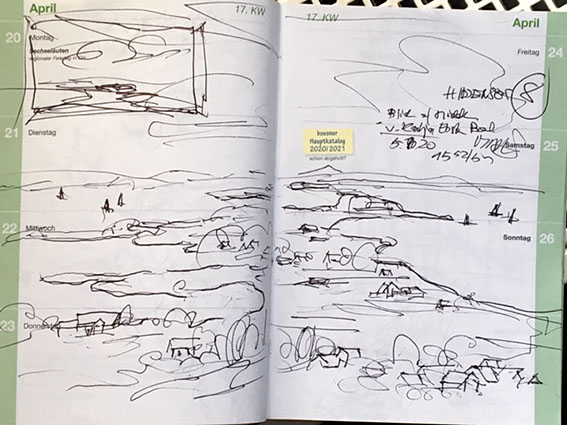 April
17. KW
20
Montag
Sechseläuten
regionaler Feiertag in CH
21
Dienstag
22
Mittwoch
23
Donnerstag
17. KW
April
Freitag
24
HIDDENSEE 8
Blick
boesner
Hauptkatalog
2020/2021
schon abgeholt?
Samstag
25
Sonntag
26